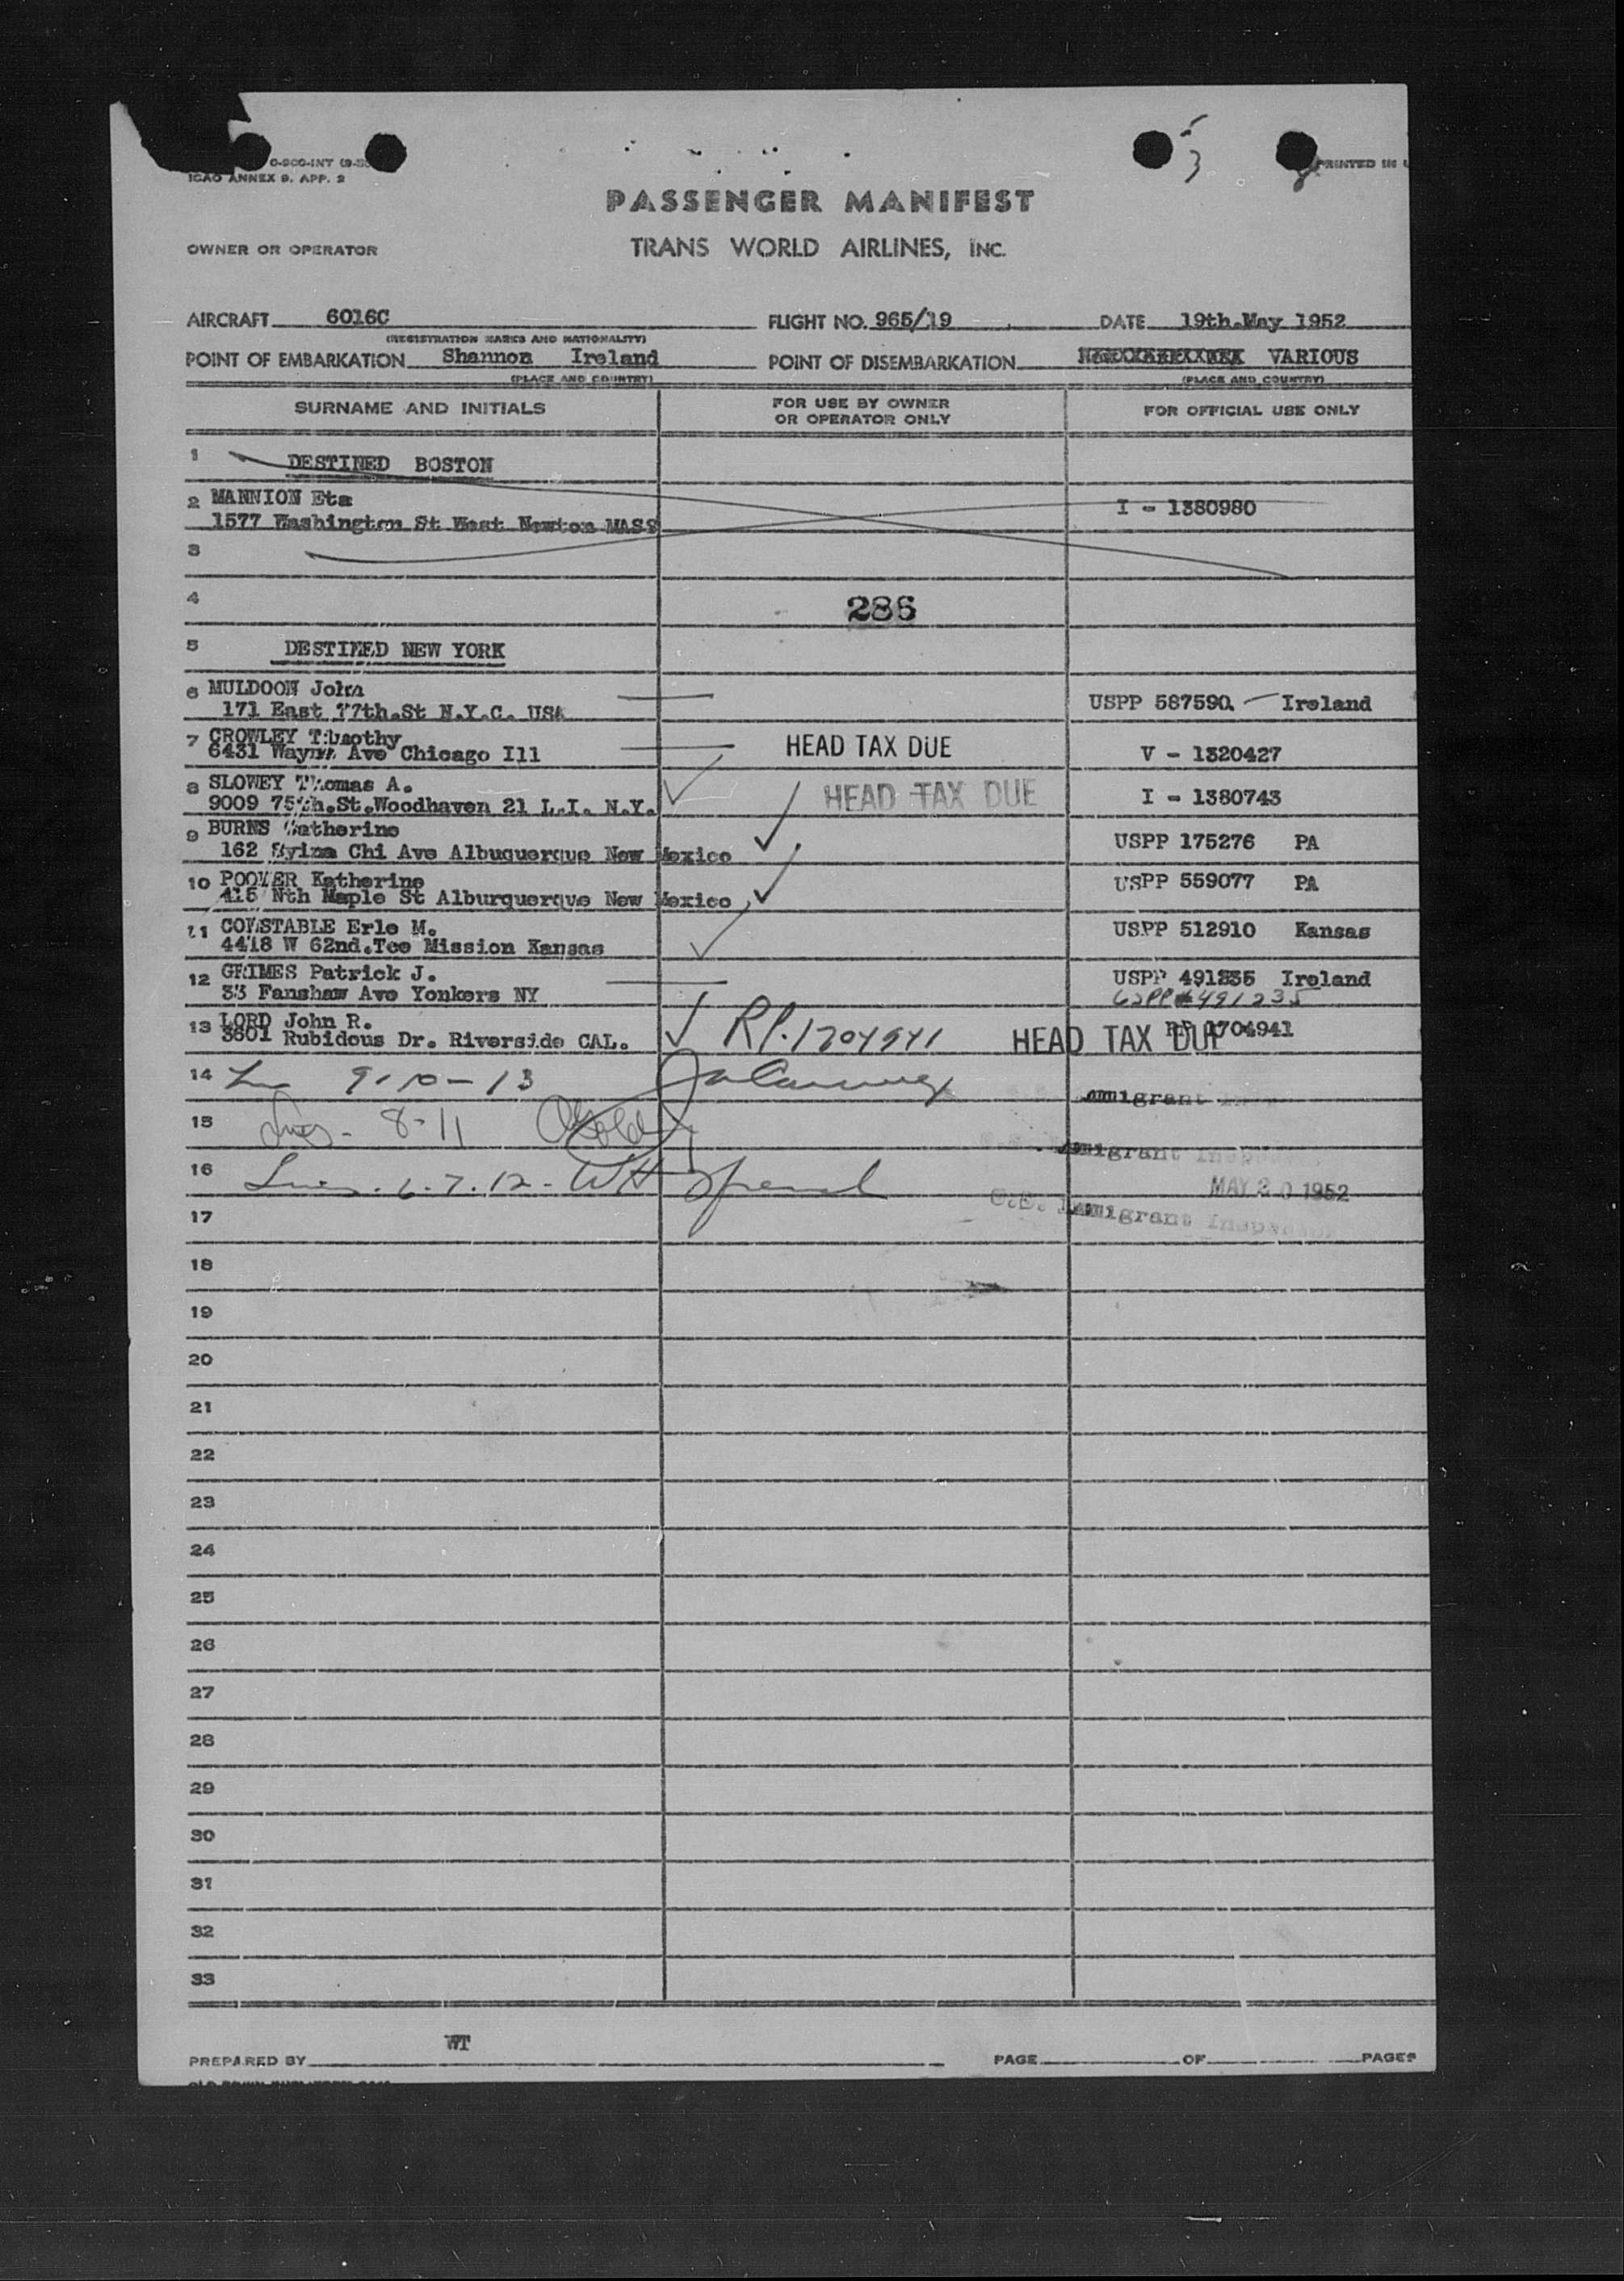 ICAO ANNEX 9. APP. 2
PRINTED IN
PASSENGER MANIFEST
OWNER OR OPERATOR TRANS WORLD AIRLINES, INC.
AIRCRAFT 6016C FLIGHT NO. 965/19 DATE 19th.May 1952
(REGISTRATION MARKS AND NATIONALITY)
POINT OF EMBARKATION Shannon Ireland POINT OF DISEMBARKATION VARIOUS
(PLACE AND COUNTRY) (PLACE AND COUNTRY)
SURNAME AND INITIALS FOR USE BY OWNER OR OPERATOR ONLY FOR OFFICIAL USE ONLY
1 DESTINED BOSTON
2 MANNION Eta I - 1380980
1577 Washington St West Newton MASS
3
4 286
5 DESTINED NEW YORK
6 MULDOON John USPP 587590 Ireland
171 East 77th.St N.Y.C. USA
7 CROWLEY Timothy HEAD TAX DUE V - 1320427
6431 Wayne Ave Chicago Ill
8 SLOWEY Thomas A. HEAD TAX DUE I - 1380743
9009 75th.St.Woodhaven 21 L.I. N.Y.
9 BURNS Catherine USPP 175276 PA
162 Chi Ave Albuquerque New Mexico
10 Katherine USPP 559077 PA
415 Nth Maple St Alburquerque New Mexico
11 CONSTABLE Erle M. USPP 512910 Kansas
4418 W 62nd.Tce Mission Kansas
12 GRIMES Patrick J. USPP 491235 Ireland
33 Fanshaw Ave Yonkers NY USPP#491235
13 LORD John R. RP.1704941 HEAD TAX DUE RP 1704941
3601 Rubidous Dr. Riverside CAL.
14 9-10-13
Immigrant
15 8-11
Immigrant
16 Lines. 6.7.12-
MAY 20 1952
Immigrant Inspector
17
18
19
20
21
22
23
24
25
26
27
28
29
30
31
32
33
WT
PREPARED BY PAGE OF PAGES